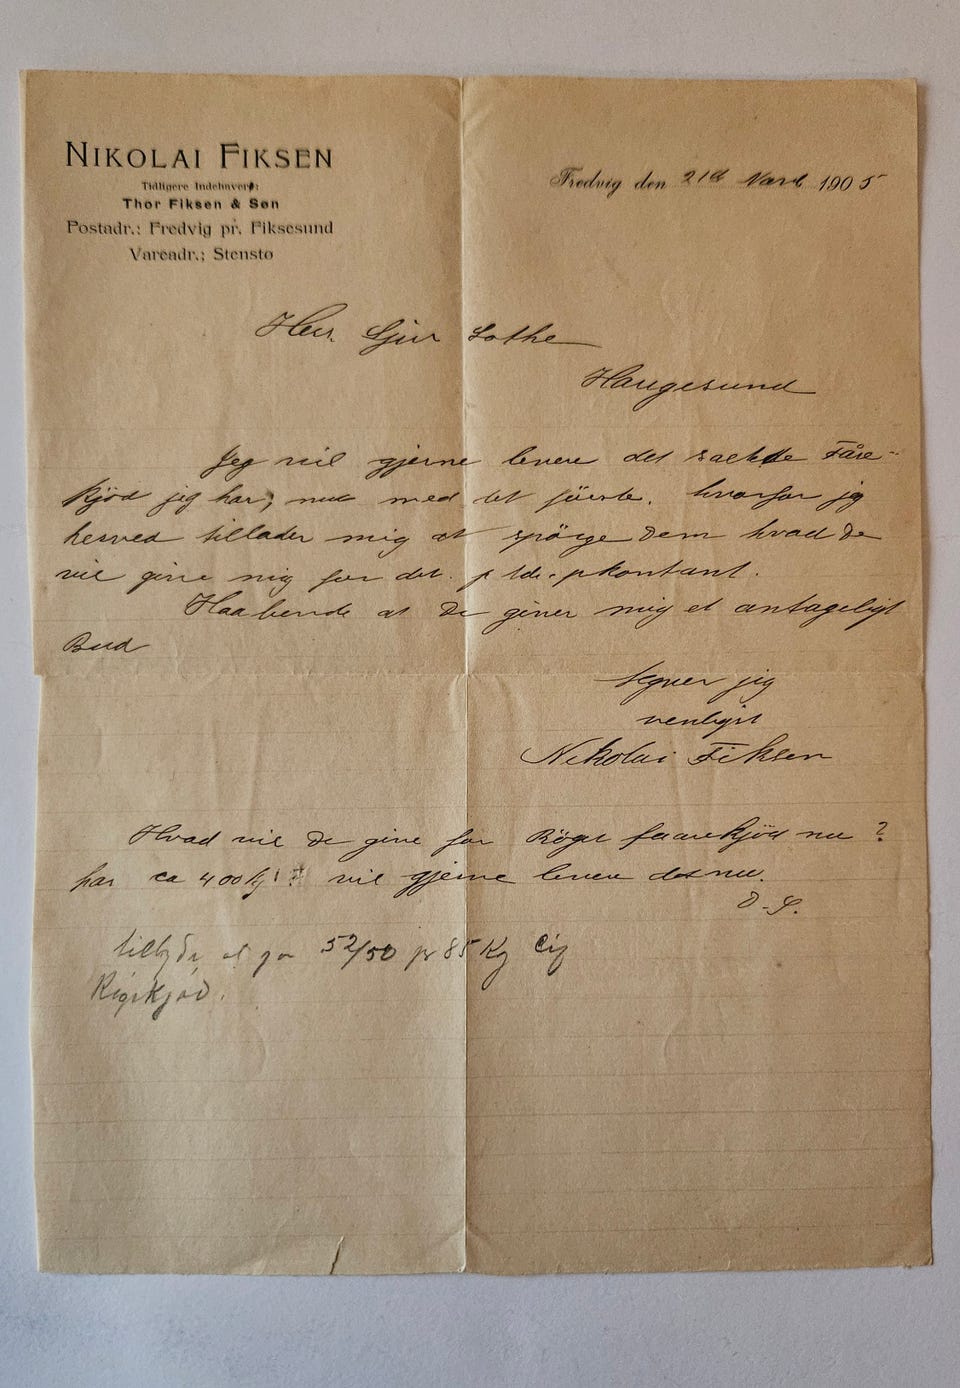 NIKOLAI FIKSEN
Tidligere Indehavere:
Thor Fiksen & Søn
Postadr.: Fredvig pr. Fiksesund
Vareadr.: Stenstø
Fredvig den 21d 1905
Herr Sjur Lothe
Haugesund
Jeg vil gjerne levere det Fåre-
kjød jeg har, nu med det første. hvorfor jeg
herved tillader mig at spörge Dem hvad De
vil give mig for det. kontant.
Haabende at De giver mig et antageligt
Bud
tegner jeg
venligst
Nikolai Fiksen
Hvad vil De give for Röget faarekjöd nu ?
har ca 400 kg vil gjerne levere det nu.
D. S.
52/50 pr 85 Kg